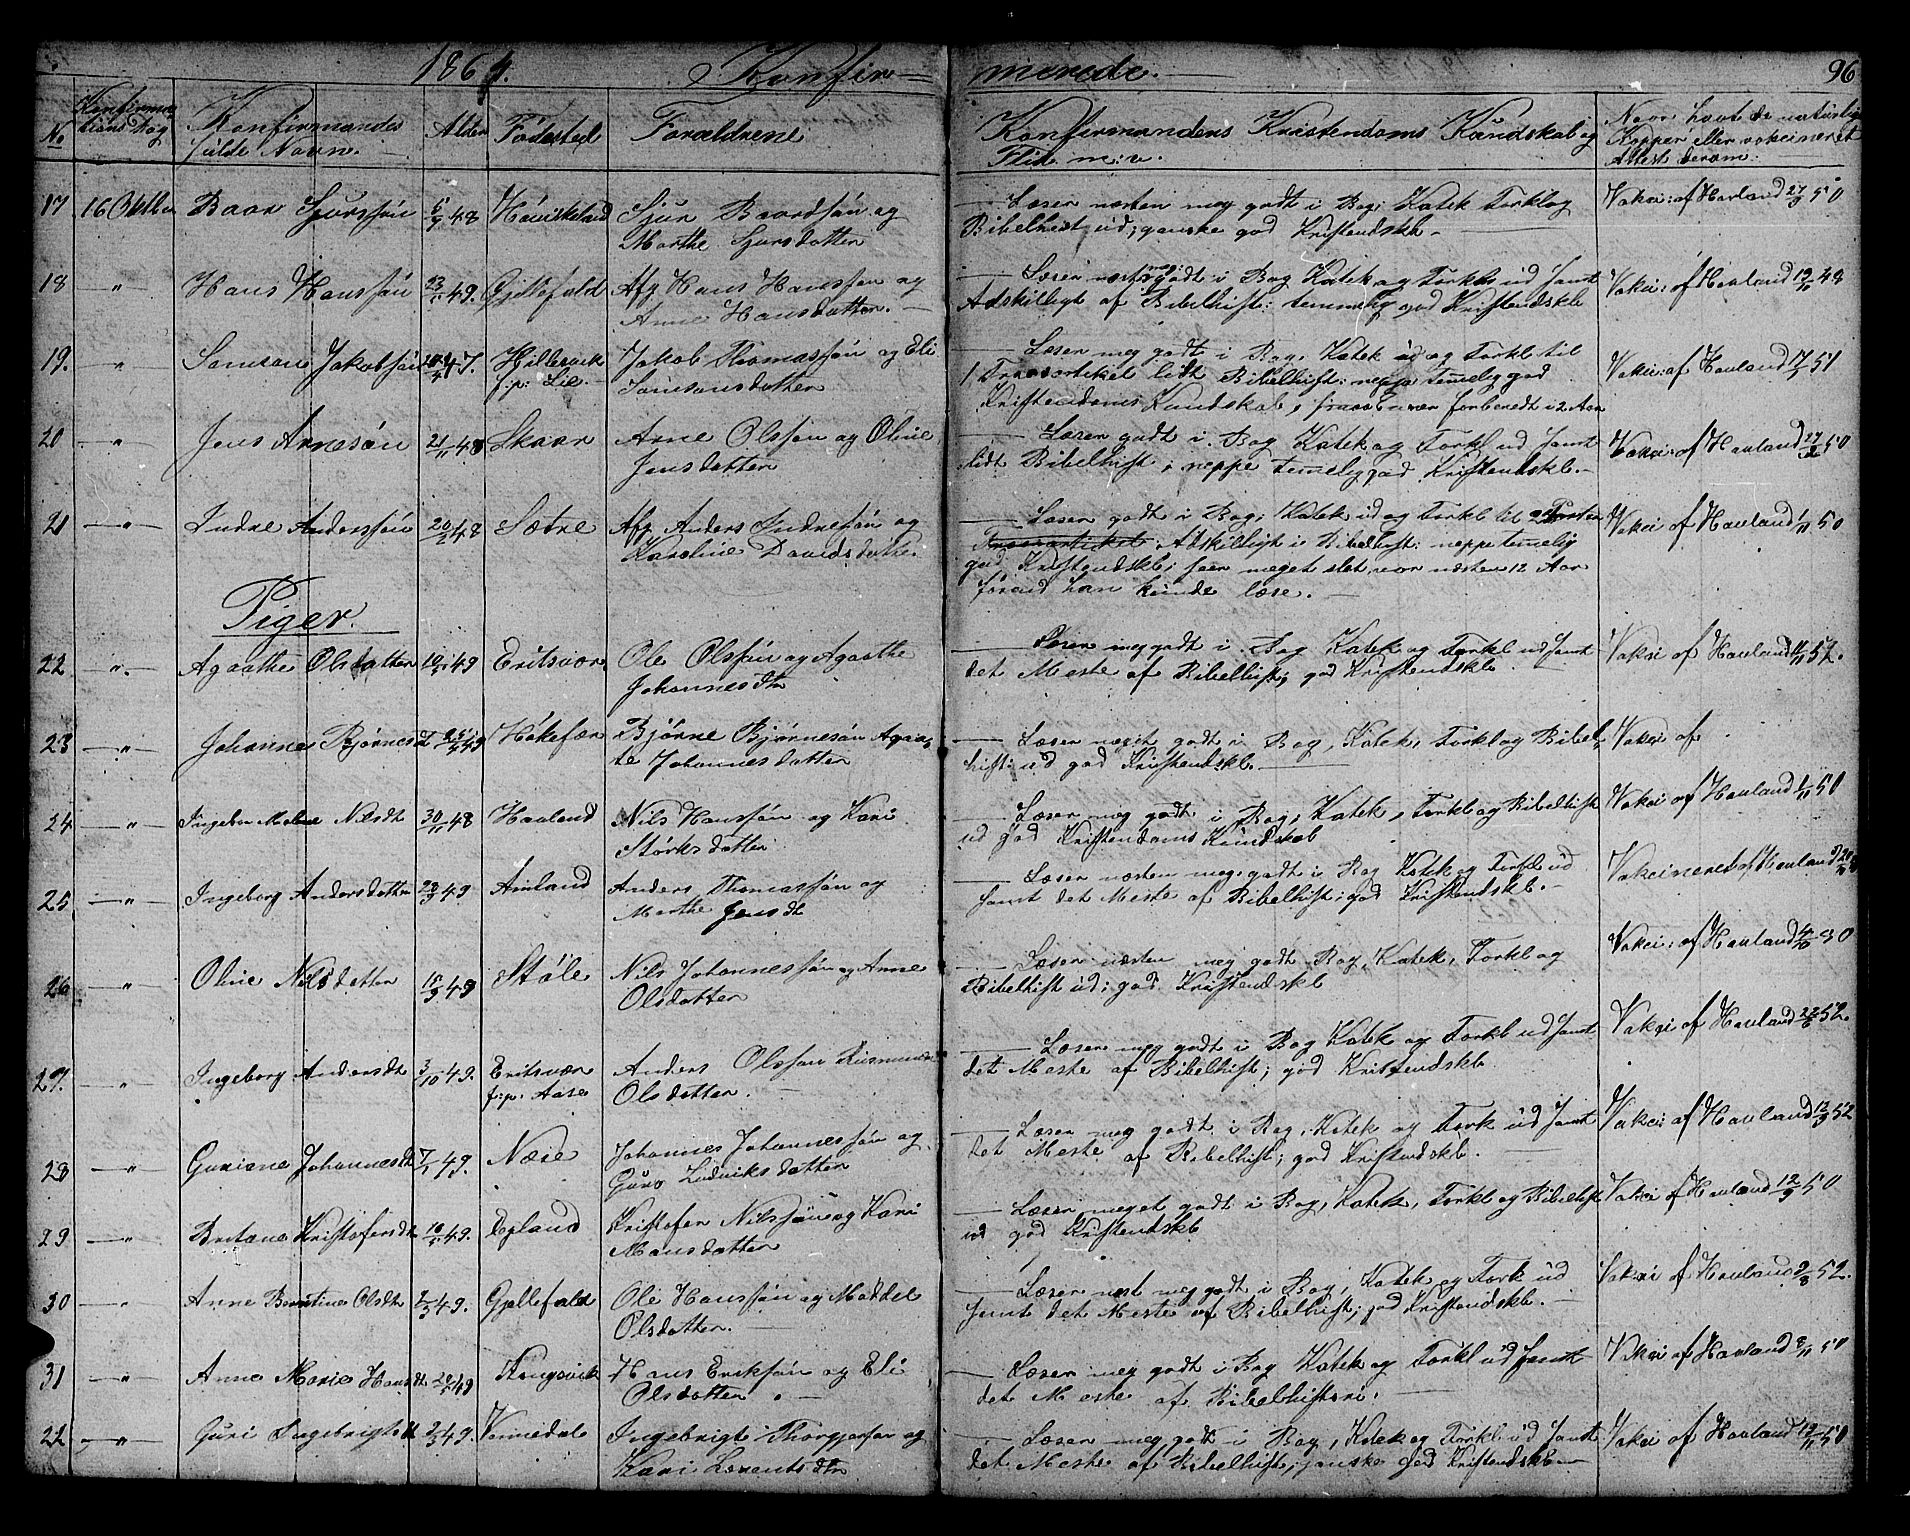 1864. Konfir=
merede. 96
No
Konfirma
tions Dag
Konfirmandes
fulde Navn.
Alder
Födested
Forældrene
Konfirmandens Kristendoms Kundskab og
Flid m: v.
Naar havt de naturlig
Kopper eller vakcineret
Attest derom.
17 16 Oktbr Baar Sjursfön 5/9 48 Haviskeland Sjur Baardsön og
Marthe Sjursdatter
Læser næsten meg godt i Bog; Katek Forkl og
Bibelhist ud; ganske god Kristendskb -
Vakci: af Havland 27/9 50
18 -"- Hans Hansfön 23/5 49. Gjellefald Afg Hans Hansfön og
Anne Hansdatter. -
Læser næst meg: godt i Bog Katek og Forkl ud samt
Adskilligt af Bibelhist: temmelig god Kristendskb
Vakci: af Havland 19/11 48
19. " Samson Jakobsön 47. Hillesvik
f: p: Lie-
Jakob Thomassön og Eli
Samsonsdatter
Læser meg godt i Bog, Katek ud og Forkl til
1 Troesartikel lidt Bibelhist: neppe temelig god
Kristendoms Kundskab, forberedt i 2 Aar
Vakci: af Havland 17/7 51
20 " Jens Arnesön 21/11 48 Skaar Arne Olsfön og Oline
Jensdatter
Læser godt i Bog Katek og Forkl ud samt
lidt Bibelhist; neppe temelig god Kristendskb. -
Vakci: af Havland 27/9 50
21 -"- Indre Andersfön 20/2 48 Sætre Afg Anders Indresön og
Karoline Davidsdatter
Læser godt i Bog; Katek ud og Forkl til 2 Parten
Troesartikel Adskilligt i Bibelhist: neppe temelig
god Kristendskb; seer meget slet, var næsten 12 Aar
forend han kunde læse. -
Vakci af Havland 1/11 50
Piger.
22 ". Agaathe Olsdatter 10/5 49 Eritsvær Ole Olsfön og Agaathe
Johannesdtr
Læser meg godt i Bog Katek og Forkl ud samt
det Meste af Bibelhist; god Kristendskb.
Vakci af Havland 11/11 52.
23 -"- Johanne Björnesdt Hökefær Björne Björnesön Agaa-
te Johannesdatter
Læser meget godt i Bog, Katek, Forkl og Bibel
hist: ud god Kristendskb.
Vakci af
24 -"- Ingebor Malene Nilsdt 30/11 48 Havland Nils Hansfön og Kari
Störksdatter
Læser meg godt i Bog, Katek, Forkl og Bibelhist
ud god Kristendoms Kundskab
Vakci af Havland 1/11 50
25 -"- Ingeborg Andersdatter 23/3 49. Amland Anders Thomassön og
Marthe Jensdt
Læser næsten meg: godt i Bog Katek og Forkl ud
samt det Meste af Bibelhist; god Kristendskb. -
Vakcineret af Havland
26 -"- Oline Nilsdatter 15/9 49 Stöle Nils Johannesfön og Anne
Olsdatter
Læser næsten meg godt Bog, Katek, Forkl og
Bibelhist ud; god Kristendskb
Vakci: af Havland 4/10 50
27. -"- Ingeborg Andersdt 3/10 49. Eritsvær
f: p: Aase
Anders Olsson Rasmun
Olsdatter.
Læser meg godt i Bog Katek og Forkl ud samt
det Meste af Bibelhist; god Kristendskb
Vakci af Havland 22/6 52.
28 -"- Guriane Johannesdt 7/1 49. Næse Johannes Johannesfön og
Guro Ludviksdatter
Læser meg godt i Bog, Katek og Fork ud samt
det Meste af Bibelhist; god Kristendskb.
Vakci: af Havland 12/9 52
29 -"- Britane Kristofersdt 10/5 49. Dyland Kristofer Nilsfön og Kari
Mansdatter
Læser meget godt i Bog, Katek, Forkl og Bibelhist
ud god Kristendskb
Vakci af Havland 12/9 50
30 -"- Anne Berntine Olsdt 49. Gjellefald Ole Hansfön og Maddel
Olsdatter. -
Læser næst meg godt i Bog, Katek og Fork ud
samt det Meste af Bibelhist; god Kristendskb. -
Vakci af Havland 2/8 52.
31 -" Anne Marie Hansdt 49 Kongsvik Hans Eriksfön og Eli
Olsdatter. -
Læser meg godt i Bog Katek og Forkl ud samt
det Meste af Bibelhistori.
Vakci af Havland 8/11 50
22 -"- Guri Ingebrigtsdt 3/3 49. Vennedale Ingebrigt Thorgjersen og
Kari Lorentsdtr
Læser meg godt i Bog, Katek og Forkl ud samt
det Meste af Bibelhist; ganske god Kristendskb -
Vakci af Havland 19/11 50